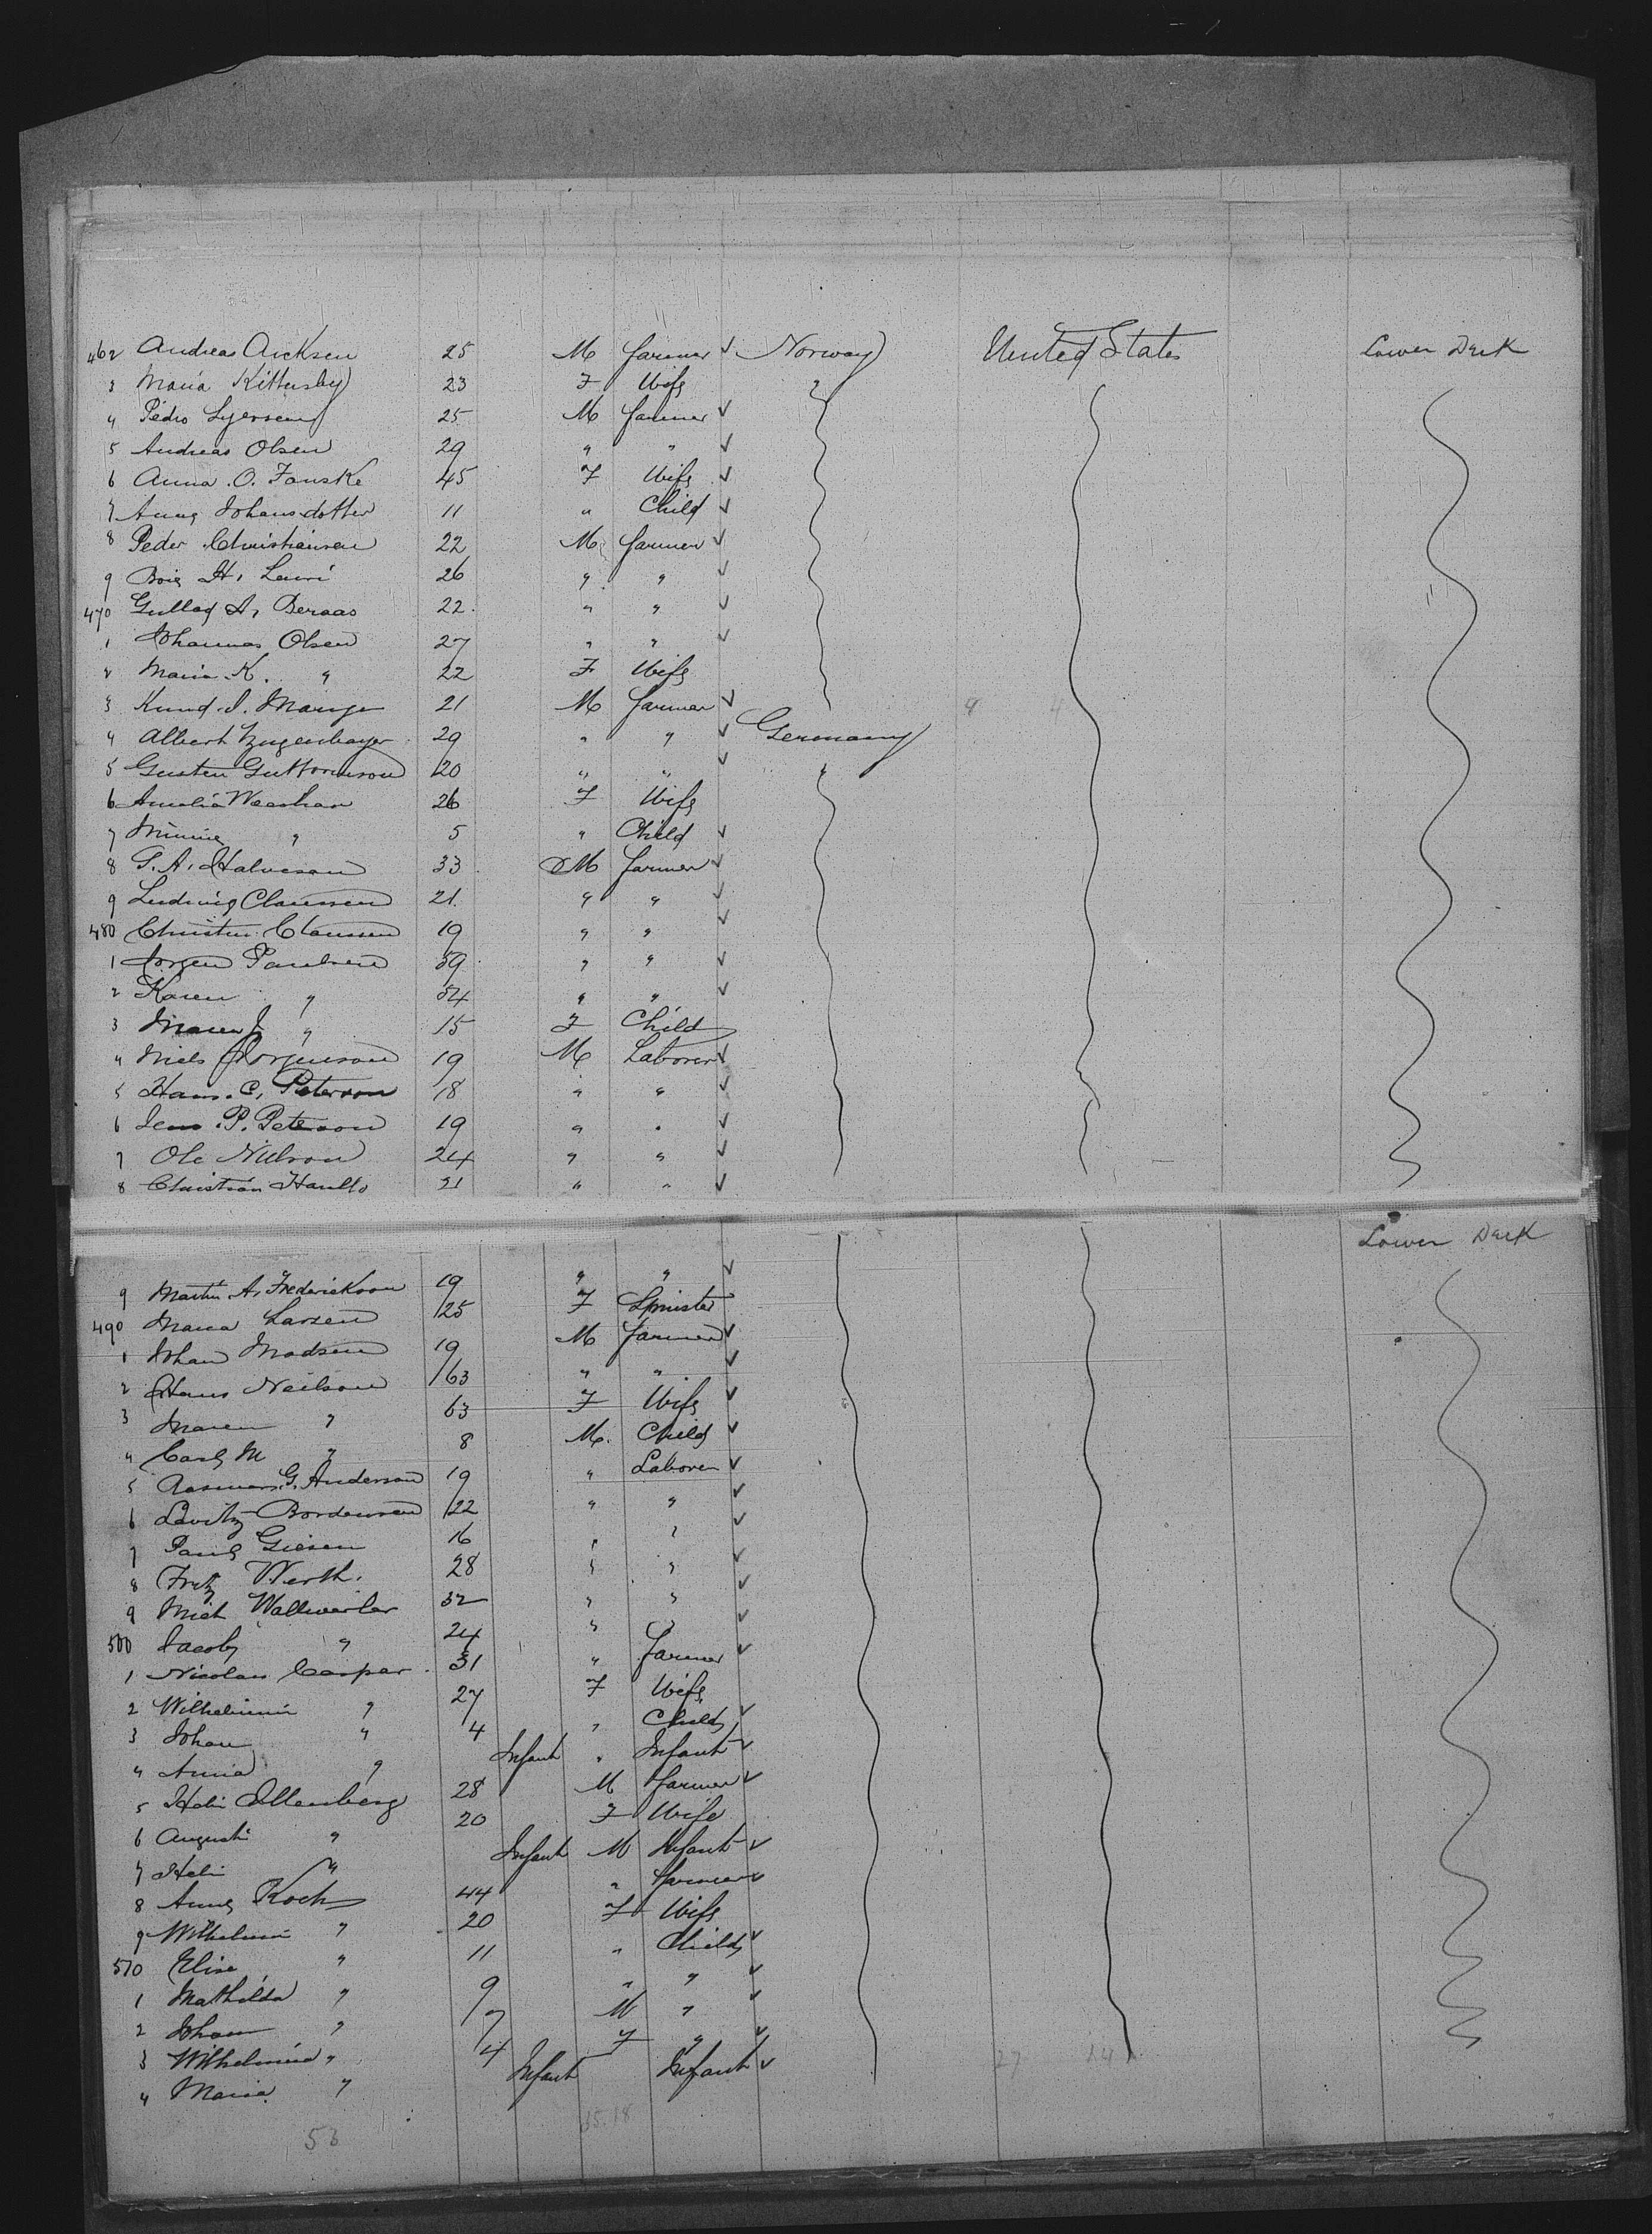 462 Andreas Aicksen 25 M farmer ✓ Norway United States Lower Deck
3 Maria Kittusby 23 F Wife "
4 Pedro Syersen 25 M farmer ✓
5 Andreas Olsen 29 " " ✓
6 Anna O. Fauske 45 F Wife ✓
7 Anna Johansdotter 11 " Child ✓
8 Peder Christiansen 22 M farmer ✓
9 H. 26 " " ✓
470 A. Beraas 22 " " ✓
1 Johannes Olsen 27 " " ✓
2 Maria K. " 22 F Wife
3 Knud J. Mange 21 M farmer ✓ 9 4
4 Albert 29 " " ✓ Germany
5 Gusten Guttormson 20 " " ✓ "
6 Amelia 26 F Wife
7 Minnie " 5 " Child ✓
8 Halvesan 33 M farmer ✓
9 Ludwig Claussen 21 " " ✓
480 Christen Claussen 19 " " ✓
1 Jorgen Paulsen 59 " " ✓
2 Karen " 54 " " ✓
3 Maren J. " 15 F Child
4 Niels Jorgenson 19 M Laborer ✓
5 Hans C. Peterson 18 " " ✓
6 Jens P. Peterson 19 " " ✓
7 Ole Nielson 24 " " ✓
8 Christian 21 " " ✓
Lower Deck
9 Martin A. Frederickson 19 " " ✓
490 Maria Larsen 25 F Spinster
1 Johan Madsen 19 M farmer ✓
2 Hans Neilson 63 " " ✓
3 Maren " 63 F Wife ✓
4 Carl M " 8 M. Child ✓
5 G. Anderson 19 " Laborer ✓
6 22 " " ✓
7 Paul Giesen 16 " " ✓
8 Fritz Werth. 28 " " ✓
9 Mich Wallweiler 32 " " ✓
500 Jacob " 24 " " ✓
1 Nicolaus Caspar 31 " farmer ✓
2 Wilhelmin " 27 F Wife
3 Johan " 4 " Child ✓
4 Anna " Infant " Infant ✓
5 Ellenberg 28 M farmer ✓
6 August " 20 F Wife
7 " Infant M Infant ✓
8 Koch 44 " farmer ✓
9 Wilhelmin " 20 F Wife
510 Elise " 11 " Child ✓
1 Mathilda " 9 " " ✓
2 Johan " 7 M " ✓
3 Wilhelmina " 4 F " ✓
4 Maria " Infant Infant ✓ 27 24
53 35.18